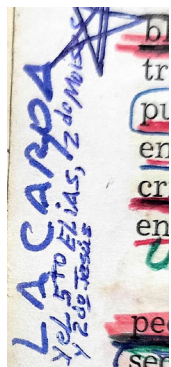 LA CARPA
y el 5to ELiAS, 2 do Moises
y 2 do Jesús
bl
tr
pu
en
cr
en
pe
seo